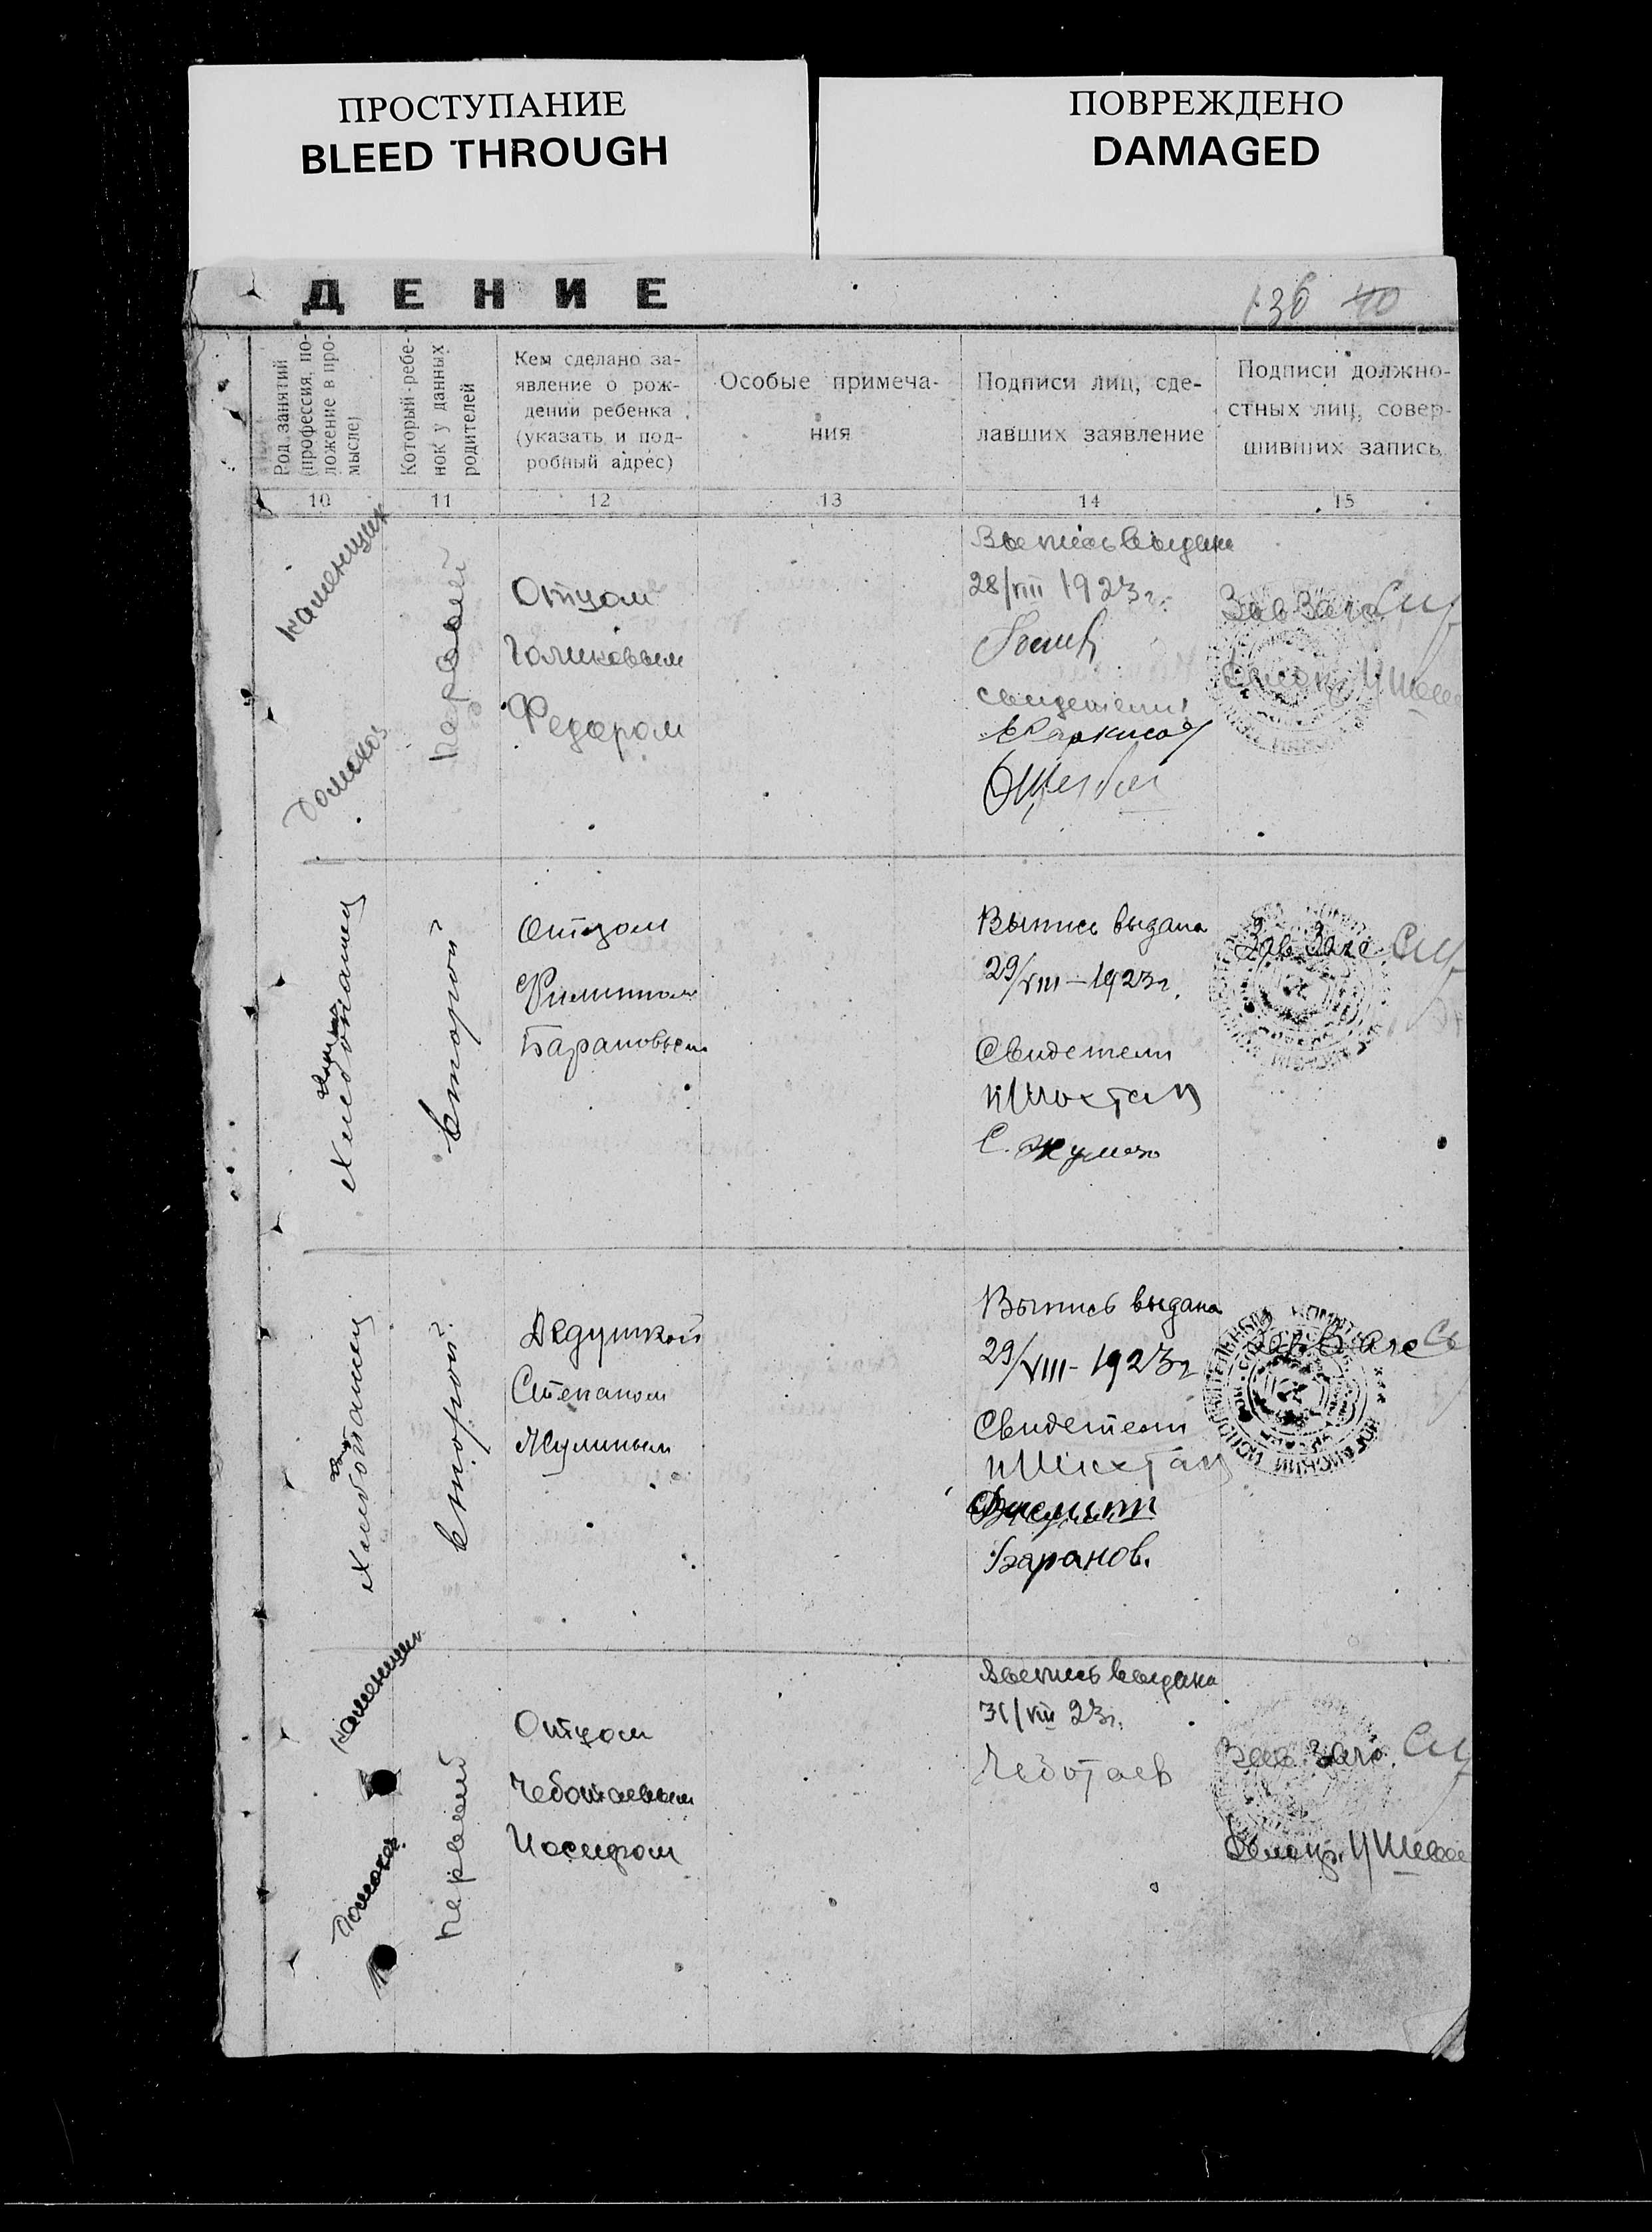 ПРОСТУПАНИЕ
BLEED THROUGH
ПОВРЕЖДЕНО
DAMAGED
ДЕНИЕ
136 40
Род занятий
(профессия, по-
ложение в про-
мысле)
Который ребе-
нок у данных
родителей
Кем сделано за-
явление о рож-
дении ребенка
(указать и под-
робный адрес)
Особые примеча-
ния
Подписи лиц, сде-
лавших заявление
Подписи должно-
стных лиц, совер-
шивших запись
10 11 12 13 14 15
каменщик
домохоз
первый
Отцом
Голиковым
Федором
Выпись выдана
28/VIII 1923 г.
свидетели
Зав Загс
Хлебопашец
второй
Отцом
Филиппом
Барановым
Выпись выдана
29/VIII – 1923 г.
Свидетели
Зав Загс
Хлебопашец
второй
Дедушкой
Степаном
Жулиным
Выпись выдана
29/VIII – 1923 г
Свидетели
Баранов.
Зав Загс
каменщик
домохоз.
первый
Отцом
Чеботаевым
Иосифом
Выпись выдана
31/VIII 23 г.
Чеботаев
Зав Загс.